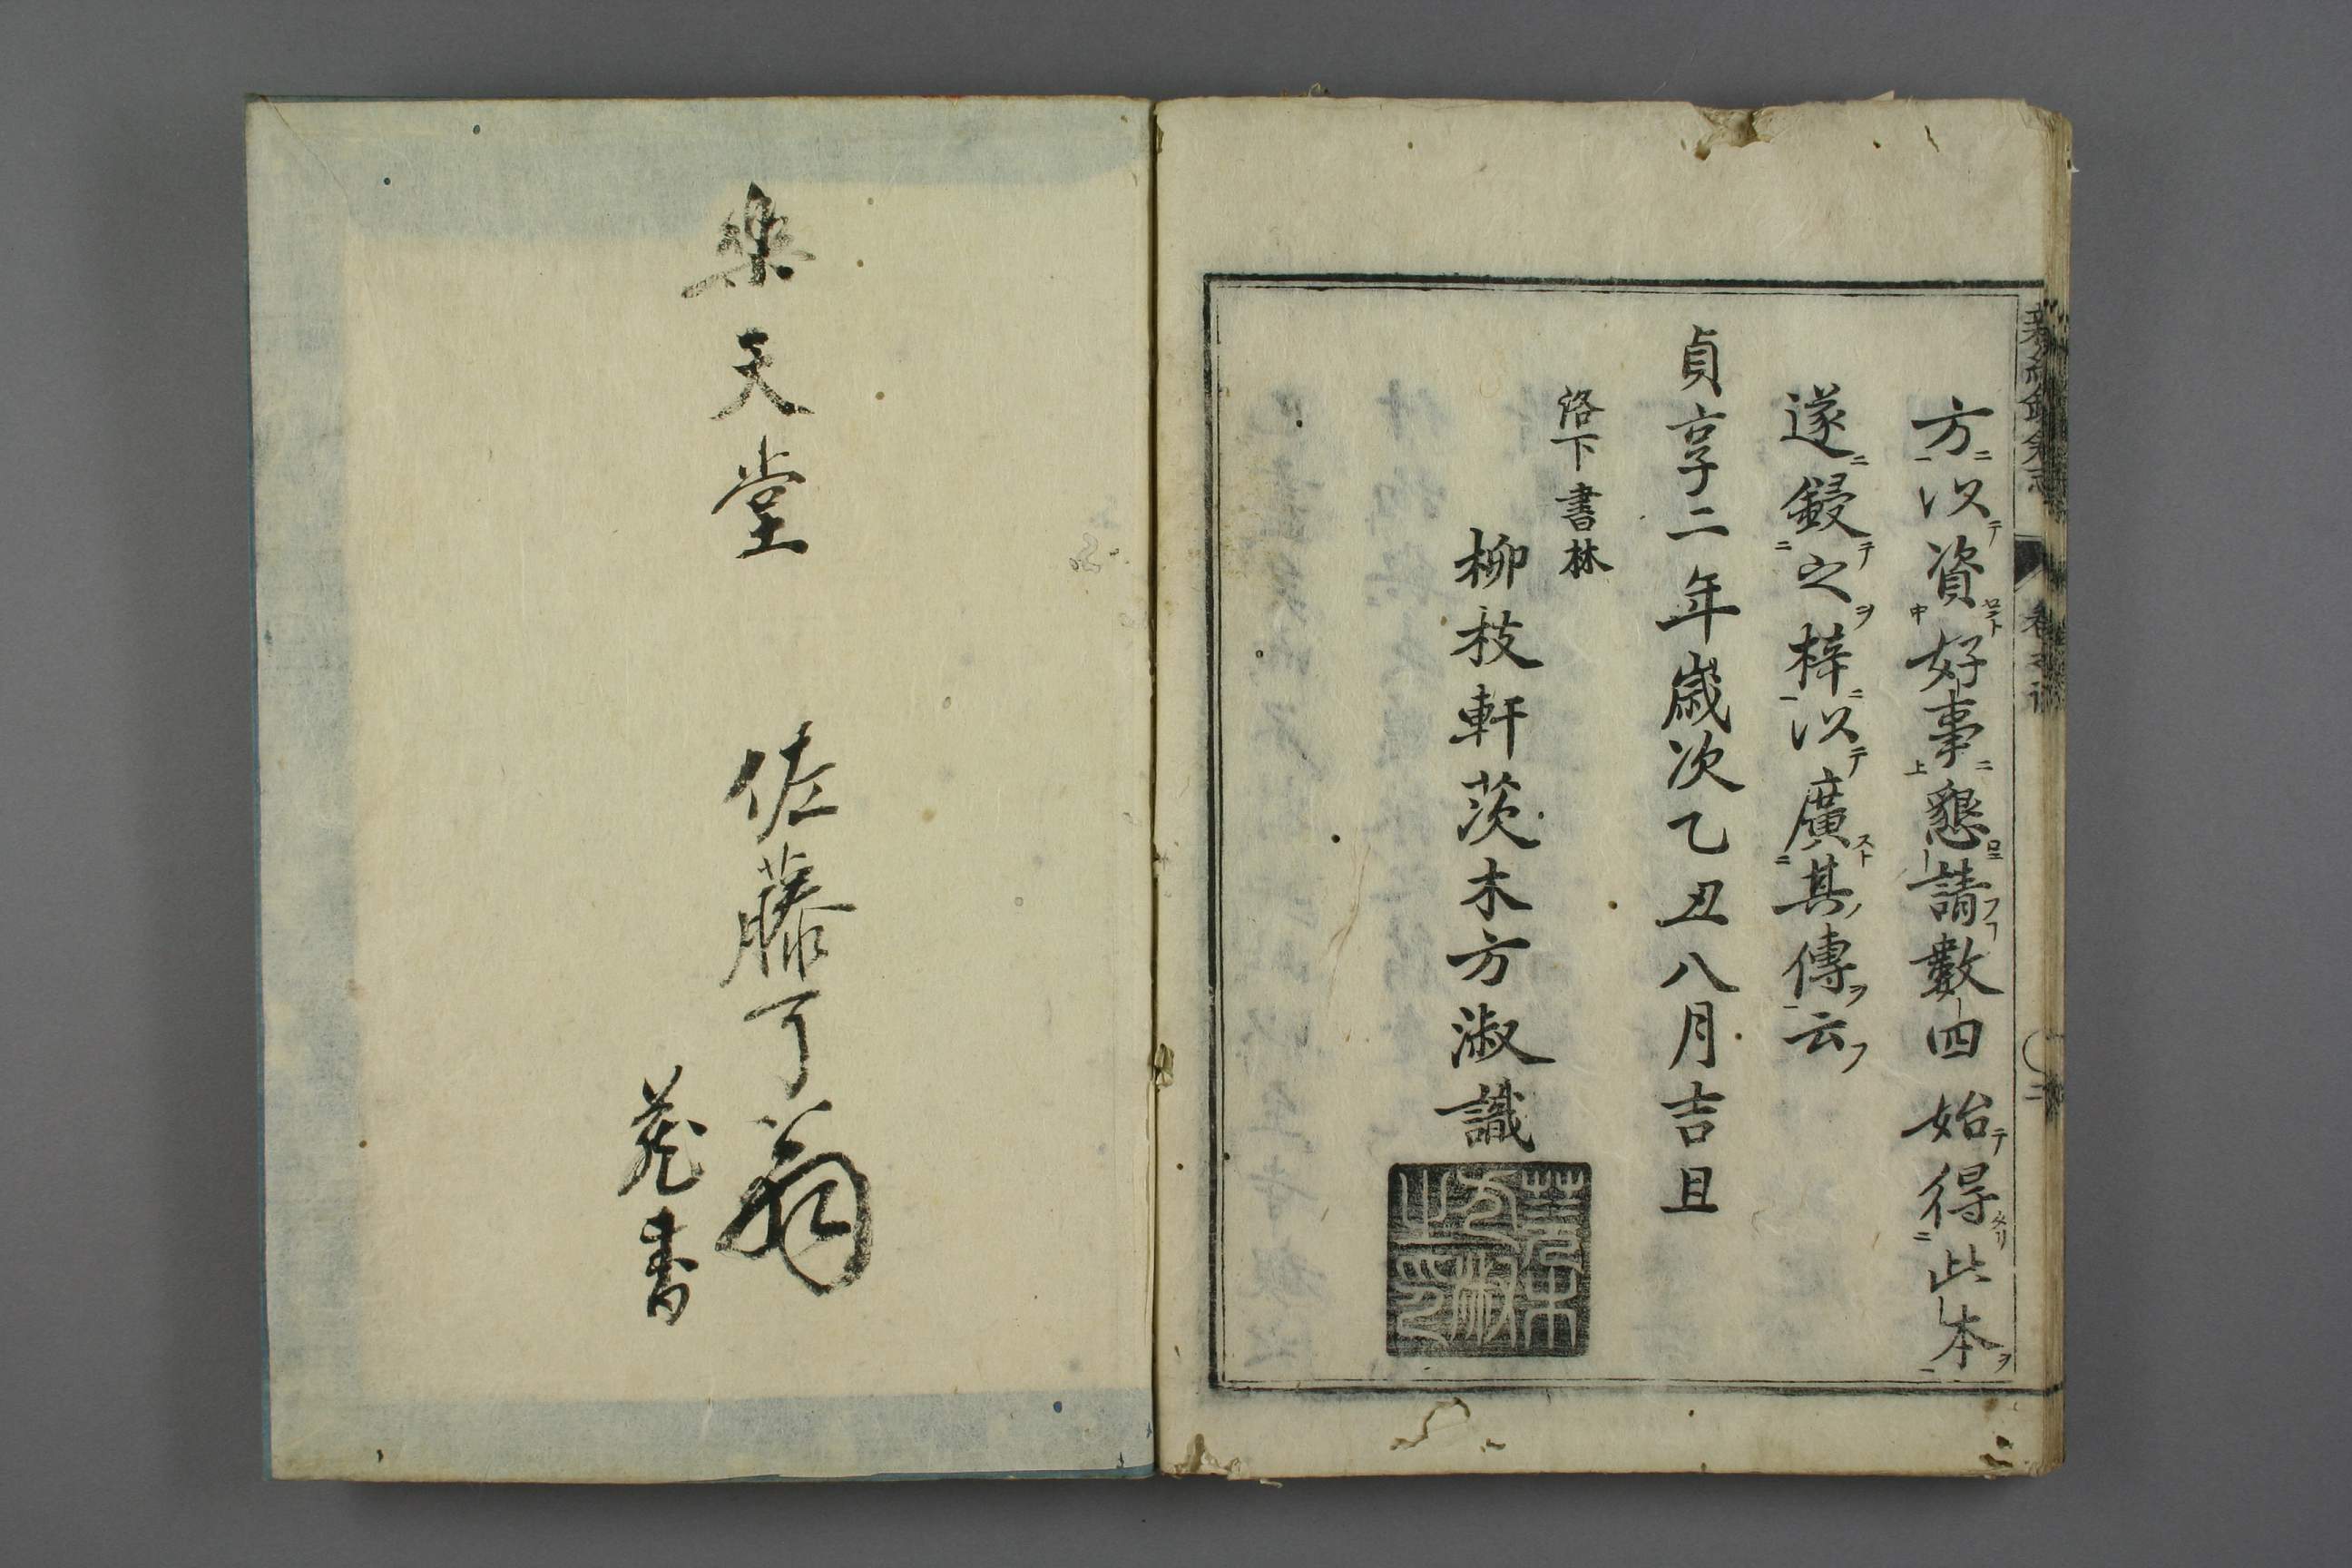 方以資好事懇請數四始得此本
遂鋟之梓以廣其傳云
貞享二年歲次乙丑八月吉旦
洛下書林
柳枝軒茨木方淑識
樂天堂 佐藤了翁
蔵書